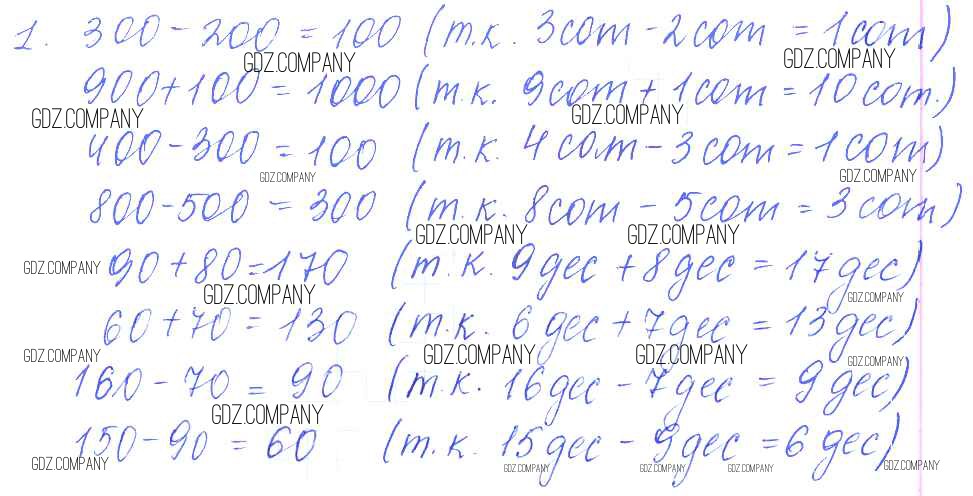 1. 300 - 200 = 100 (т.к. 3 сот - 2 сот = 1 сот)
GDZ.COMPANY GDZ.COMPANY
900 + 100 = 1000 (т.к. 9 сот + 1 сот = 10 сот.)
GDZ.COMPANY GDZ.COMPANY
400 - 300 = 100 (т.к. 4 сот - 3 сот = 1 сот)
GDZ.COMPANY GDZ.COMPANY
800 - 500 = 300 (т.к. 8 сот - 5 сот = 3 сот)
GDZ.COMPANY GDZ.COMPANY
GDZ.COMPANY 90 + 80 = 170 (т.к. 9 дес + 8 дес = 17 дес)
GDZ.COMPANY GDZ.COMPANY
60 + 70 = 130 (т.к. 6 дес + 7 дес = 13 дес)
GDZ.COMPANY GDZ.COMPANY GDZ.COMPANY GDZ.COMPANY
160 - 70 = 90 (т.к. 16 дес - 7 дес = 9 дес)
GDZ.COMPANY
150 - 90 = 60 (т.к. 15 дес - 9 дес = 6 дес)
GDZ.COMPANY GDZ.COMPANY GDZ.COMPANY GDZ.COMPANY GDZ.COMPANY